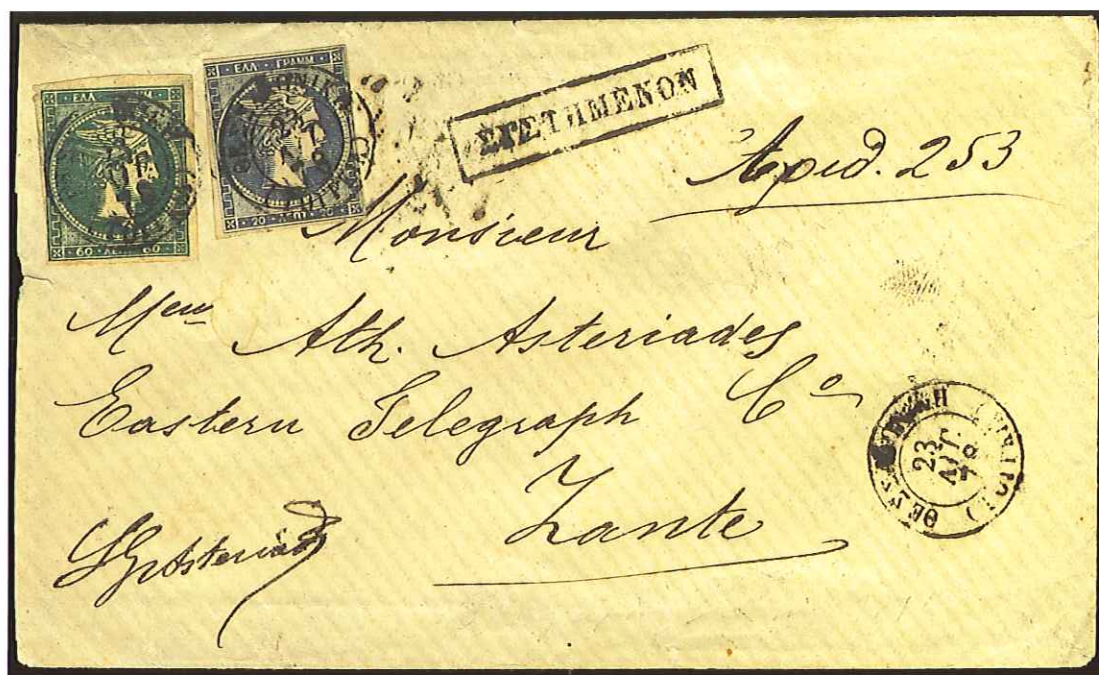 ΕΛΛ ΓΡΑΜΜ
60 ΛΕΠ 60
ΕΛΛ ΓΡΑΜΜ
20 ΛΕΠΤ 20
ΣΥΣΤΗΜΕΝΟΝ
Αριθ. 253
Monsieur
Ath. Asteriades
Eastern Telegraph Co
Zante
23
ΑΥΓ.